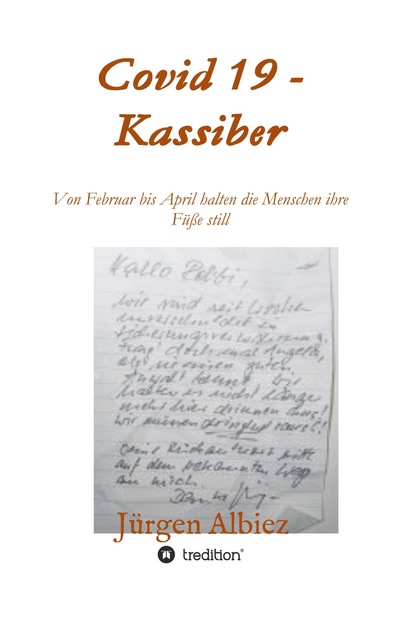 Covid 19 -
Kassiber
Von Februar bis April halten die Menschen ihre
Füße still
Hallo
wir sind seit Wochen
unverschuldet in
Sicherungsverwahrung.
Frag' doch mal Angela,
ob sie einen guten
Anwalt kennt. Wir
halten es nicht länger
nicht hier drinnen aus!
Wir müssen dringend raus!
Deine Rückantwort bitte
auf dem bekannten Weg
an mich.
Danke
Jürgen Albiez
tredition®